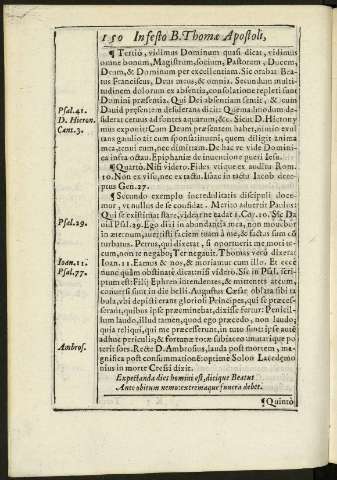 150 In festo B. Thomæ Apostoli,
¶ Tertiò, vidimus Dominum quasi dicat, vidimus
omne bonum, Magistrum, socium, Pastorem, Ducem,
Deum, & Dominum per excellentiam. Sic orabat Bea-
tus Franciscus, Deus meus & omnia. Secundum multi-
tudinem dolorum ex absentia, consolatione repleti sunt
Domini præsentia. Qui Dei absentiam sentit, & cum
Psal. 41.
Dauid præsentem desiderans dicit: Quemadmodum de-
D. Hieron.
siderat ceruus ad fontes aquarum, &c. Sicut D. Hierony-
Cant. 3.
mus exponit: Cum Deum præsentem habet, nimio exul-
tans gaudio sit cum sponsa: inueni, quem diligit anima
mea, tenui eum, nec dimittam. De hac re vide Domini-
ca infra octau. Epiphaniæ de inuentione pueri Iesu.
¶ Quartò. Nisi videro. Fides vtique ex auditu Rom.
10. Non ex visu, nec ex tactu. Isaac in tactu Iacob dece-
ptus Gen. 27.
¶ Secundo exemplo incredulitatis discipuli doce-
mur, vt nullus de se confidat. Meritò aduertit Paulus:
Qui se existimat stare, videat ne cadat 1. Cor. 10. Sic Da-
Psal. 29.
uid Psal. 29. Ego dixi in abundantia mea, non mouebor
in æternum, auertisti faciem tuam à me, & factus sum cõ-
turbatus. Petrus, qui dixerat, si oportuerit me mori te-
cum, non te negabo, Ter negauit. Thomas verò dixerat
Ioan. 11.
Ioann. 11. Eamus & nos, & moriamur cum illo. Et ecce
Psal. 77.
nunc quàm obstinatè dicat: nisi videro. Sic in Psal. scri-
ptum est: Filij Ephren intendentes, & mittentes arcum,
conuersi sunt in die belli. Augustus Cæsar oblata sibi ta-
bula, vbi depicti erant gloriosi Principes, qui se præces-
serant, quibus ipse præeminebat, dixisse fertur: Penicil-
lum laudo, illud tamen, quod ego præcedo, non laudo;
quia reliqui, qui me præcesserunt, in tuto sunt: ipse autē
adhuc periculis, & fortunæ rotæ subiaceo: imitari que po-
Ambros.
terit sors. Rectè D. Ambrosius, lauda post mortem, ma-
gnifica post consummationē: optimè Solon Lacedemo-
nius in morte Cresi dixit.
Expectanda dies homini est, dicique Beatus
Ante obitum nemo: extremaque funera debet.
¶ Quintò